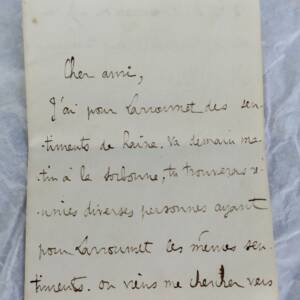 Cher ami,
J'ai pour Larroumet des sen-
timents de haine. Va demain ma-
tin à la Sorbonne, tu trouveras ré-
unies diverses personnes ayant
pour Larroumet les mêmes sen-
timents. Ou viens me chercher vers